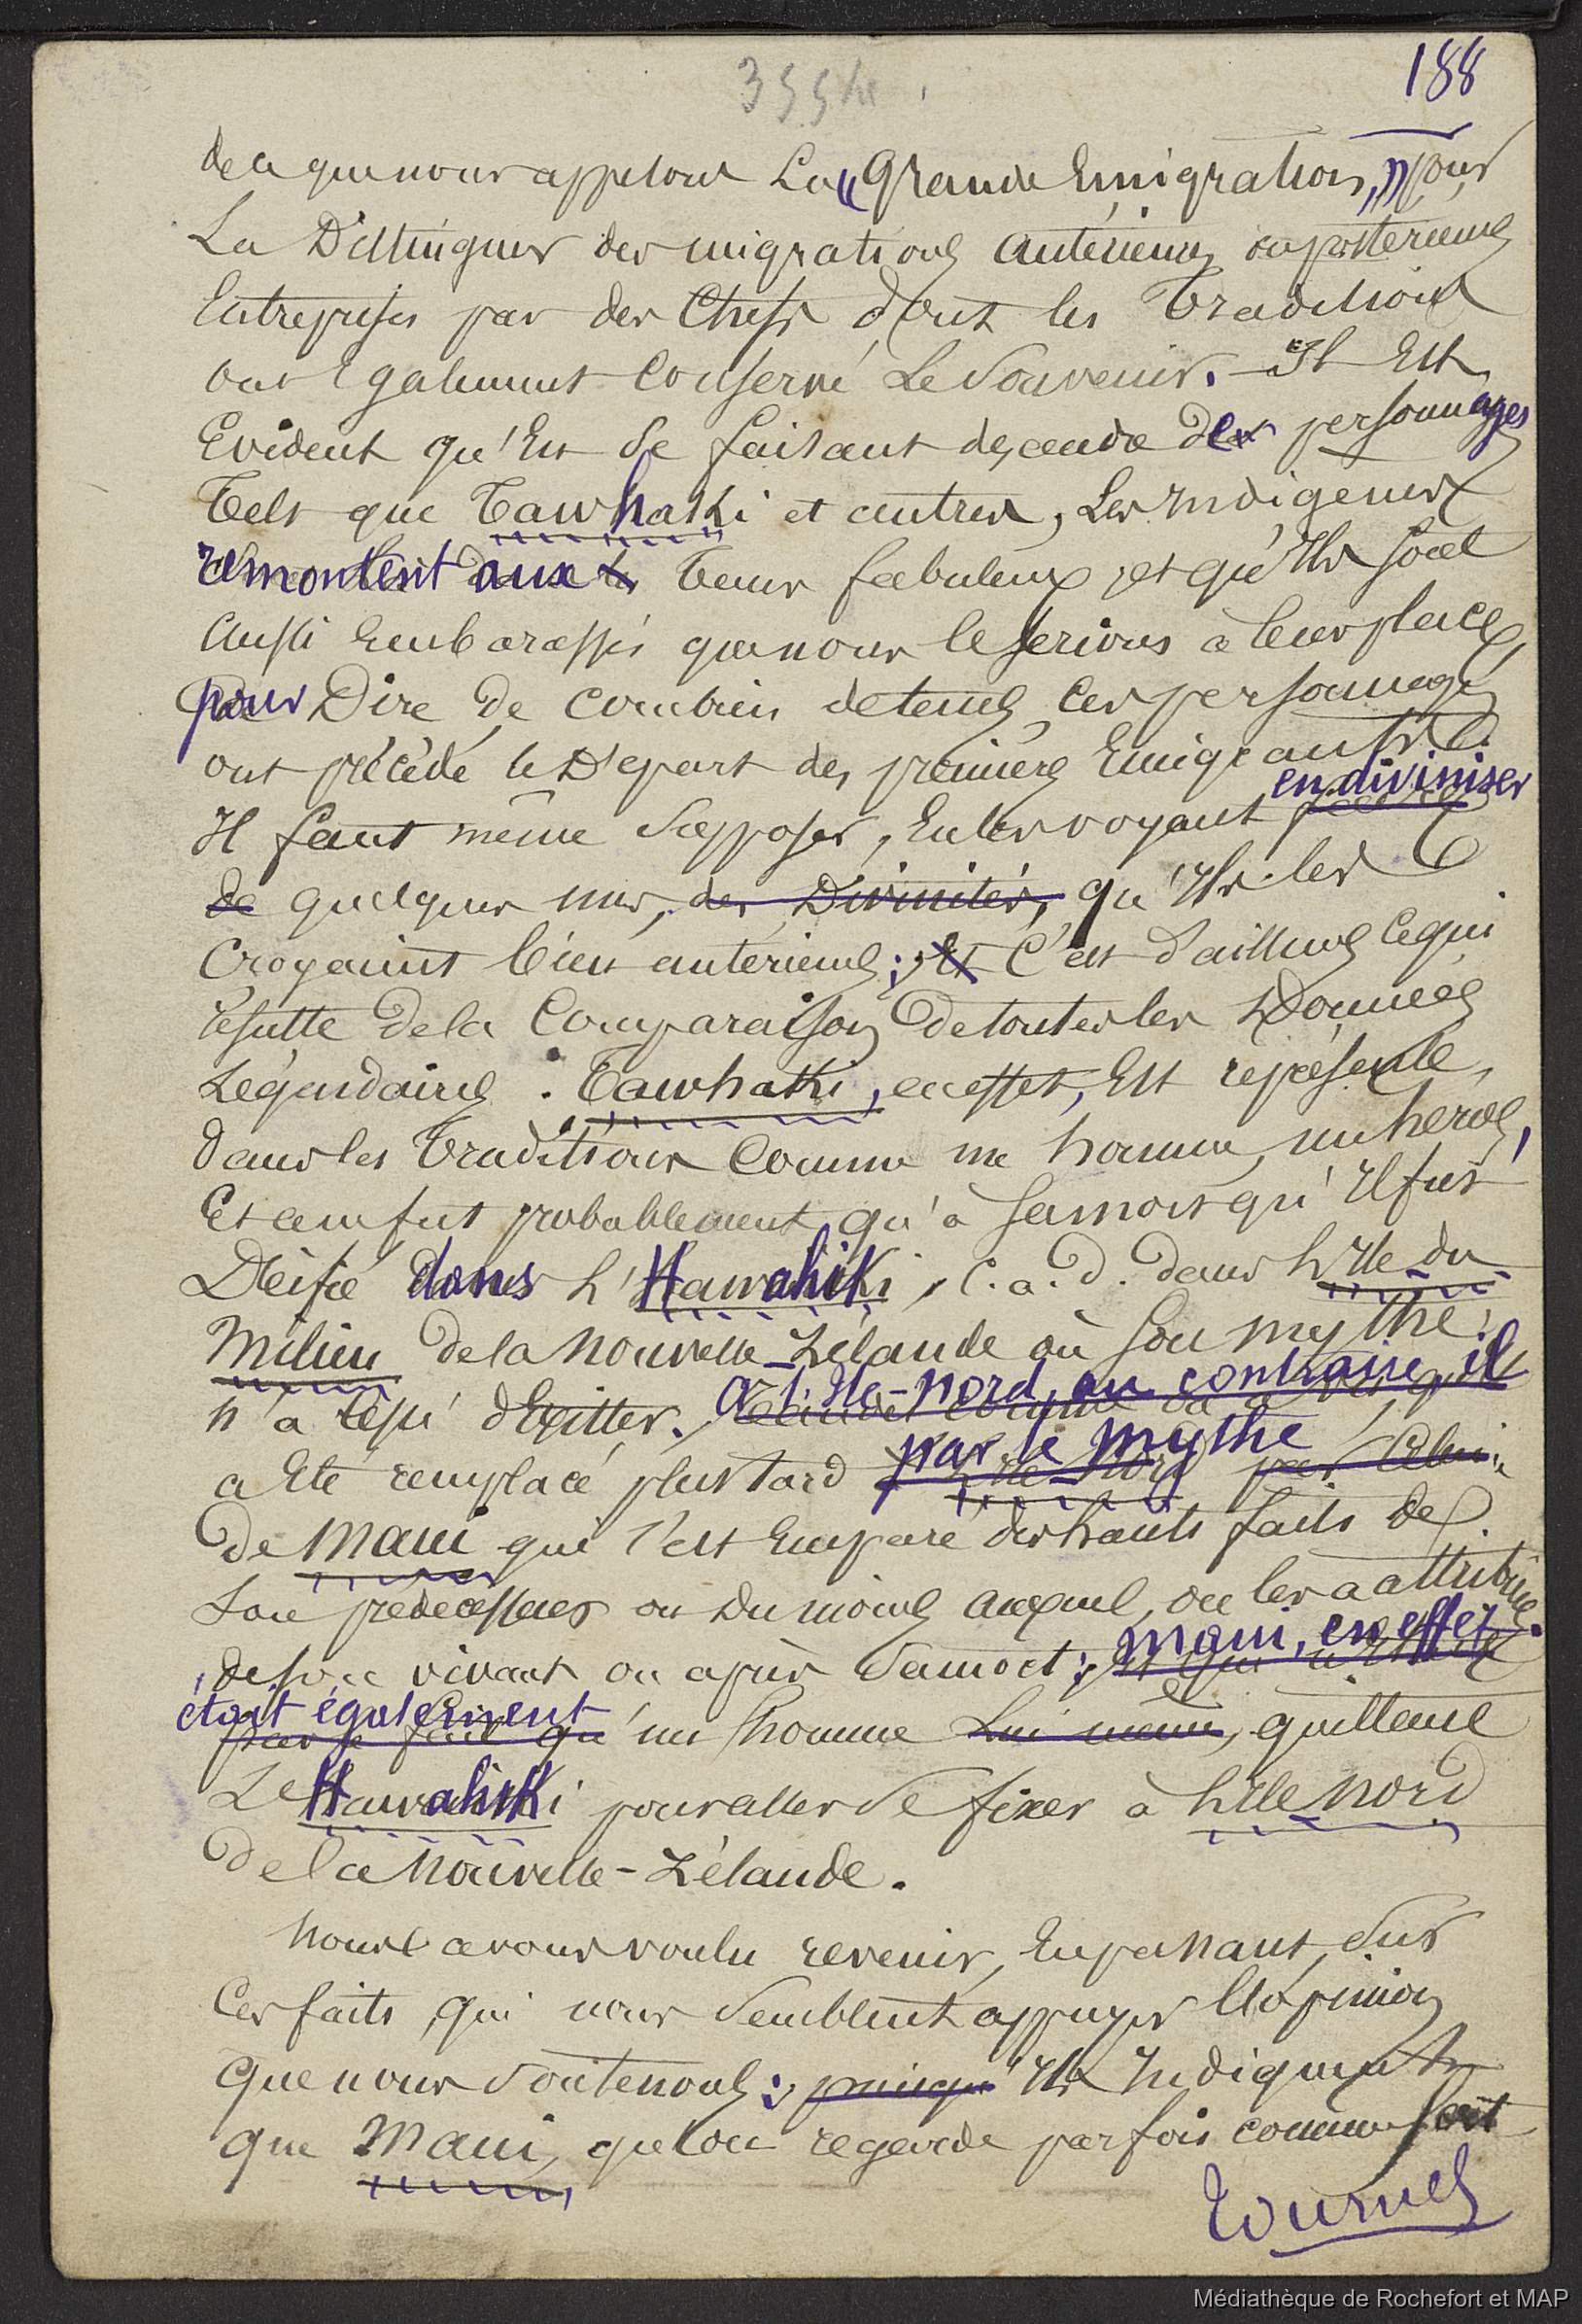 188
de ce que nous appelons La "Grande Emigration," pour
La Distinguer des migrations antérieures ou postérieures
Entreprises par des Chefs dont les Traditions
ont Egalement Conservé Le Souvenir. Il Est
Evident qu'En se faisant descendre de personnages
Tels que Tawhaki et autres, Les Indigenes
remontent aux Tems fabuleux et qu'Ils sont
Aussi Embarassés que nous le serions à leur place,
pour Dire de combien de tems Ces personnages
ont précédé le Départ des premiers Emigrants.
en diviniser
Il faut même Supposer, En les voyant
de quelques uns, des Divinités, qu'Ils les
Croyaient bien antérieurs; Et C'est d'ailleurs Ce qui
résulte De la Comparaison De toutes les Données
Légendaires. Tawhaki, en effet, Est représenté,
Dans les Traditions Comme un homme, un heros,
Et ce ne fut probablement qu'à sa mort qu'Il fut
Déifié dans L'Hawahiki, c. a. d. Dans L'Ile du
Milieu De la Nouvelle-Zélande où Son mythe
n'a cessé d'Exister. A l'Ile-Nord, au contraire, il
par le mythe
a Eté remplacé plus tard par Celui
De Maui qui s'est Emparé des hauts faits de
Son prédécesseur ou Du moins auquel on les a attribués
de son vivant ou après Sa mort; Maui, en effet,
était également
un homme Lui même, quittant
L'Hawahiki pour aller Se fixer à L'Ile Nord
De la Nouvelle-Zélande.
Nous avons voulu revenir, En passant, Sur
Ces faits, qui nous Semblent appuyer L'Opinion
Que nous Soutenons; puisqu' Ils Indiquent
que Maui, que l'on regarde parfois comme
Tournez
Médiathèque de Rochefort et MAP